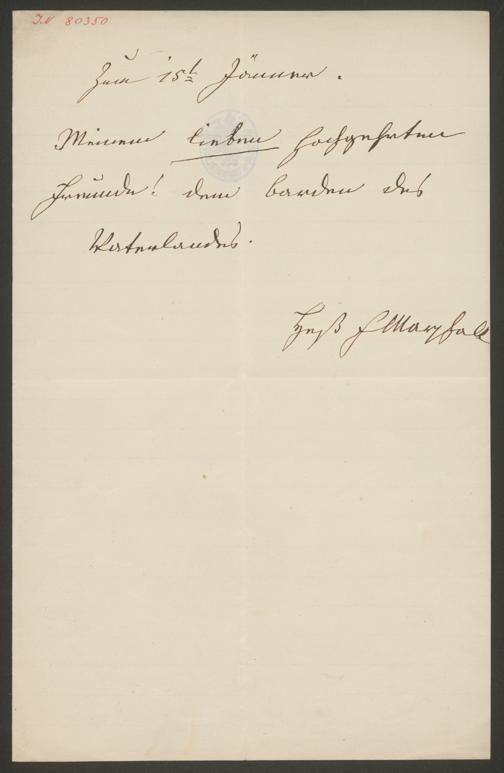 I.N 80350
Zum 15t Jänner.
Meinem lieben hochgeehrten
Freunde! dem Barden des
Vaterlandes.
Heß FMarschall